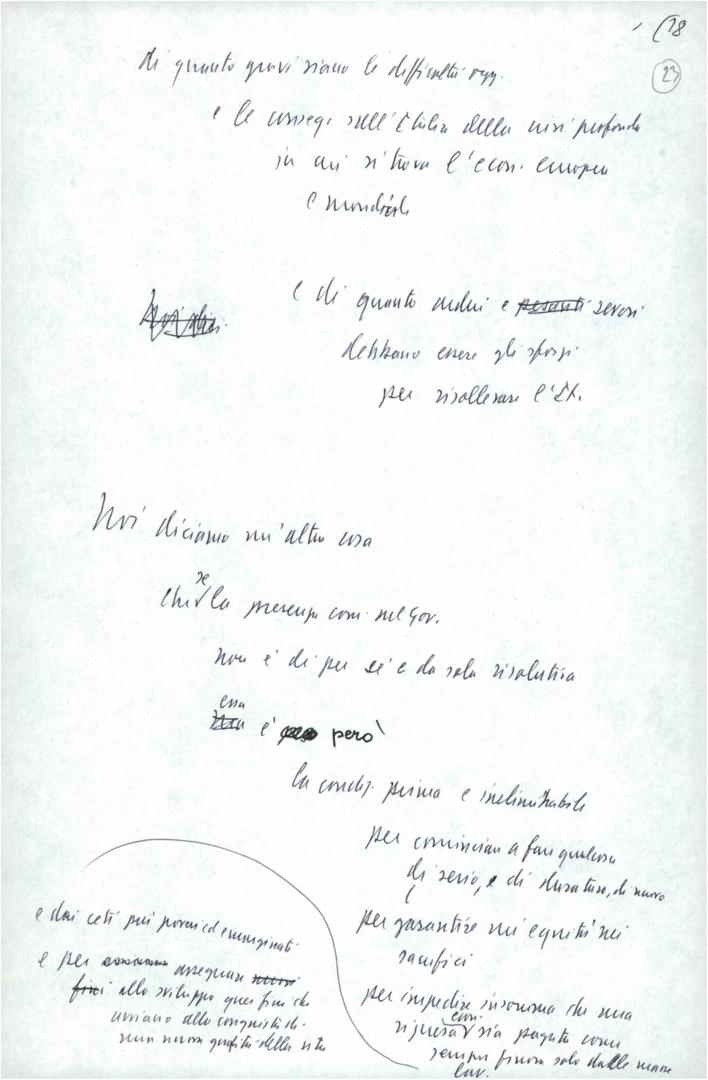 18
23
di quanto gravi siano le difficoltà ogg.
e le conseg. sull'Italia della crisi profonda
in cui si trova l'econ. europea
e mondiale
e di quanto ardui e pesanti severi
debbano essere gli sforzi
per risollevare l'It.
Noi diciamo un'altra cosa
che se la presenza com. nel Gov.
non è di per sé e da sola risolutiva
essa
è però
la condiz. prima e ineliminabile
per cominciare a fare qualcosa
di serio, e di duraturo, di nuovo
per garantire un'equità nei
sacrifici
per impedire insomma che una
ripresa sia pagata come
sempre finora solo dalle masse
lav.
e dai ceti più poveri ed emarginati
e per assegnare nuovi
fini allo sviluppo quei fini che
avviano alla conquista di
una nuova qualità della vita